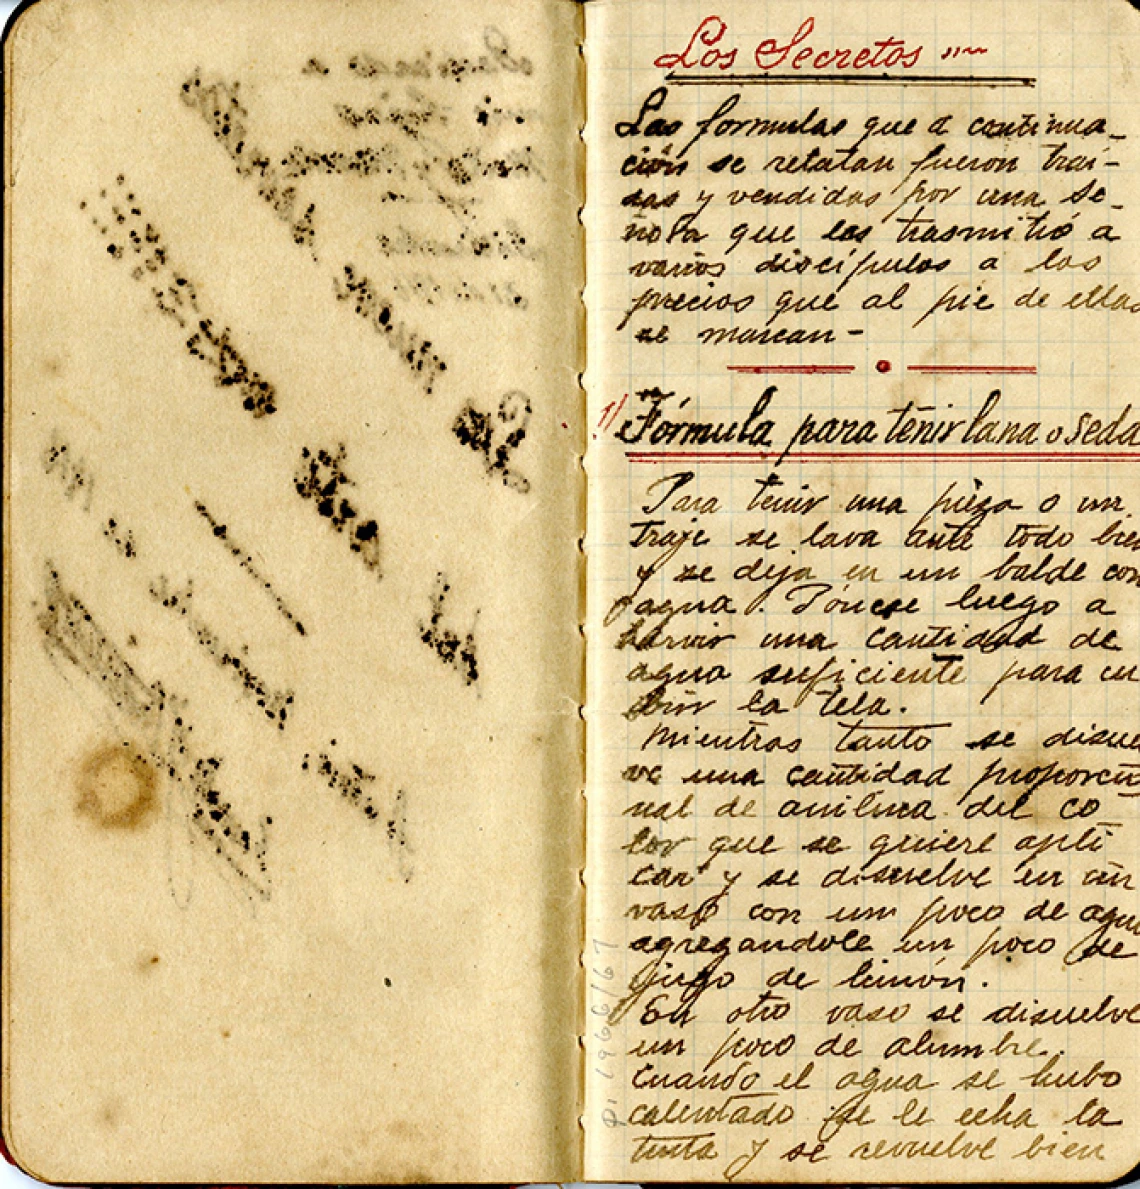 Los Secretos
Las formulas que a continua-
ción se relatan fueron traí-
das y vendidas por una se-
ñora que las trasmitió a
varios discípulos a los
precios que al pie de ellas
se marcan -
1/ Fórmula para teñir lana o seda
Para teñir una pieza o un
traje se lava ante todo bien
y se deja en un balde con
agua. Pónese luego a
hervir una cantidad de
agua suficiente para cu
brir la tela.
Mientras tanto se disuel
ve una cantidad proporcio
nal de anilina del co
lor que se quiere apli
car y se disuelve en un
vaso con un poco de agua
agregandole un poco de
jugo de limón.
En otro vaso se disuelve
un poco de alumbre.
Cuando el agua se hubo
calentado se le echa la
tinta y se revuelve bien
1966/67